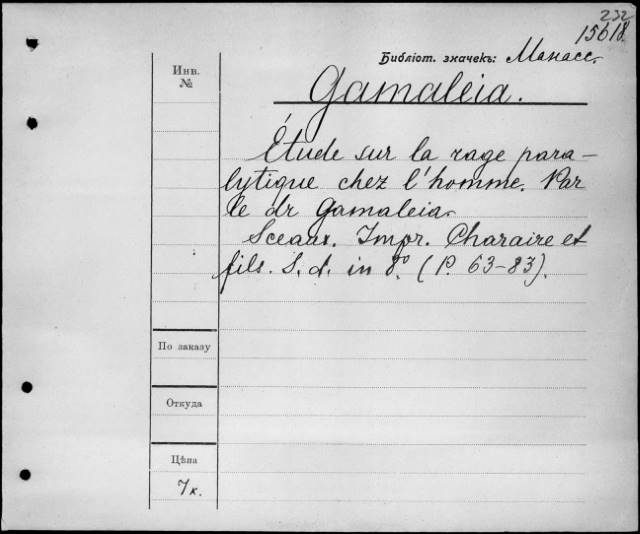 232
15618.
Библіот. значекъ: Манасс.
Инв.
№
Gamaleia.
Étude sur la rage para-
lytique chez l'homme. Par
le dr Gamaleia.
Sceaux. Impr. Charaire et
fils. S. d. in 8.° (P. 63-83).
По заказу
Откуда
Цѣна
7к.